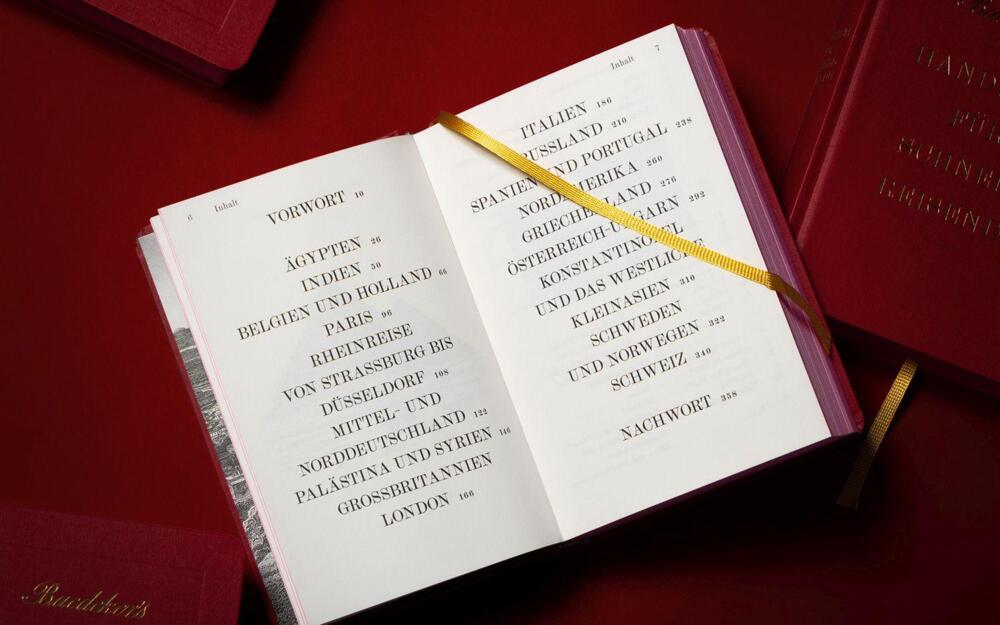 6 Inhalt
VORWORT 10
ÄGYPTEN 26
INDIEN 50
BELGIEN UND HOLLAND 66
PARIS 96
RHEINREISE
VON STRASSBURG BIS
DÜSSELDORF 108
MITTEL- UND
NORDDEUTSCHLAND 122
PALÄSTINA UND SYRIEN 146
GROSSBRITANNIEN
LONDON 166
Inhalt 7
ITALIEN 186
RUSSLAND 210
SPANIEN UND PORTUGAL 238
NORDAMERIKA 260
GRIECHENLAND 276
ÖSTERREICH-UNGARN 292
KONSTANTINOPEL
UND DAS WESTLICHE
KLEINASIEN 310
SCHWEDEN
UND NORWEGEN 322
SCHWEIZ 340
NACHWORT 358
HAND
FÜR
SCHNE
REISEND
Baedeker's